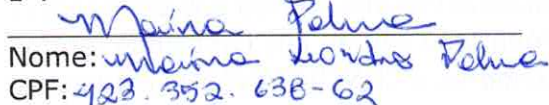 Maína Palma
Nome: Maína Leandro Palma
CPF: 423.352.638-62